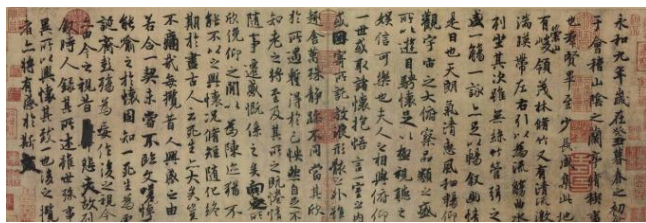 永和九年歲在癸丑暮春之初
于會稽山陰之蘭亭脩稧
也羣賢畢至少長咸集此地
有崇山峻領茂林脩竹又有清流
湍暎帶左右引以為流觴曲水
列坐其次雖無絲竹管弦之
盛一觴一詠亦足以暢敘幽情
是日也天朗氣清惠風和暢仰
觀宇宙之大俯察品類之盛
所以遊目騁懷足以極視聽之
娛信可樂也夫人之相與俯仰
一世或取諸懷抱悟言一室之內
或因寄所託放浪形骸之外雖
趣舍萬殊靜躁不同當其欣
於所遇蹔得於己怏然自足不
知老之將至及其所之既惓情
隨事遷感慨係之矣向之所
欣俛仰之閒以為陳迹猶不
能不以之興懷況脩短隨化終
期於盡古人云死生亦大矣豈
不痛哉每攬昔人興感之由
若合一契未嘗不臨文嗟悼
能喻之於懷固知一死生為虛
誕齊彭殤為妄作後之視今
亦由今之視昔悲夫故列
敘時人錄其所述雖世殊事
異所以興懷其致一也後之攬
者亦將有感於斯文